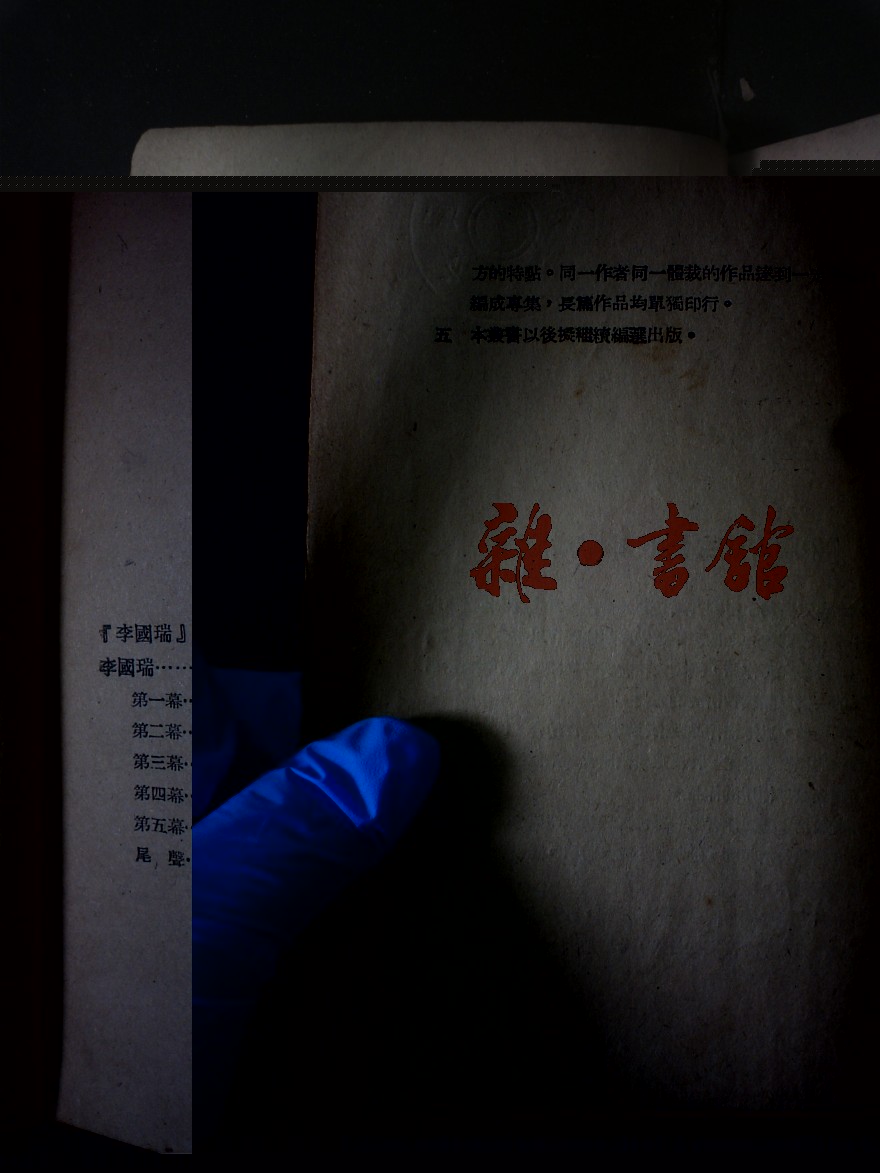 方的特點。同一作者同一體裁的作品達到一
編成專集，長篇作品均單獨印行。
五 本叢書以後擬繼續編選出版。
雜·書館
『李國瑞』
李國瑞……
第一幕··
第二幕··
第三幕··
第四幕··
第五幕··
尾 聲··